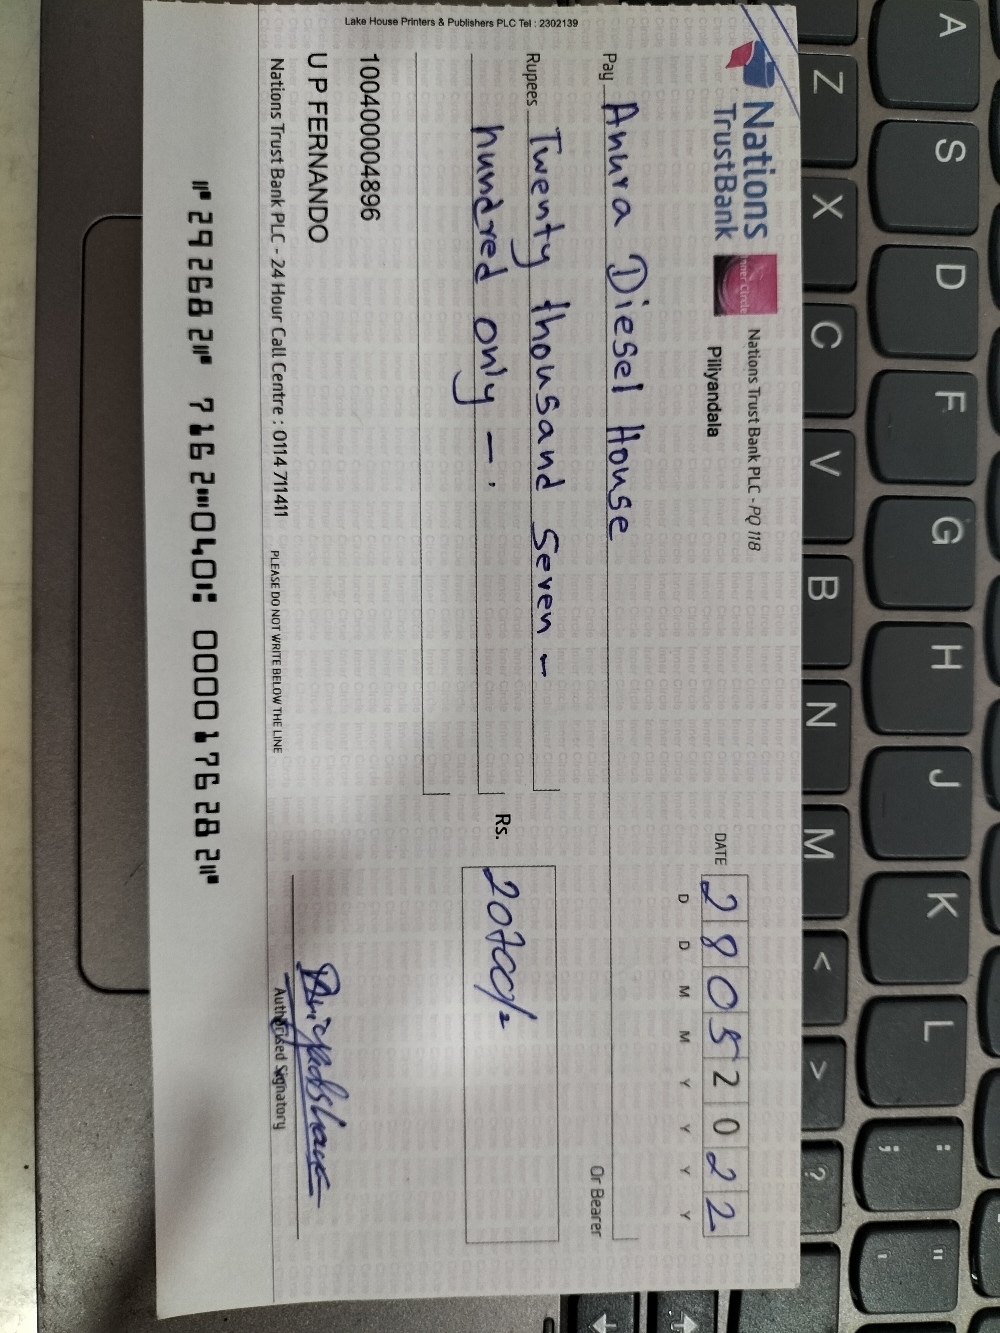 Lake House Printers & Publishers PLC Tel : 2302139
Nations
TrustBank
Inner Circle
Nations Trust Bank PLC - PQ 118
Piliyandala
DATE 2 8 0 5 2 0 2 2
D D M M Y Y Y Y
Pay Anura Diesel House
Or Bearer
Rupees Twenty thousand Seven –
hundred only – .
Rs. 20700/=
100400004896
U P FERNANDO
Authorised Signatory
Nations Trust Bank PLC - 24 Hour Call Centre : 0114 711411
PLEASE DO NOT WRITE BELOW THE LINE
⑈292682⑈ 7162⑉040⑆ 0000176282⑈
A S D F G H J K L : ; " '
Z X C V B N M < > ?